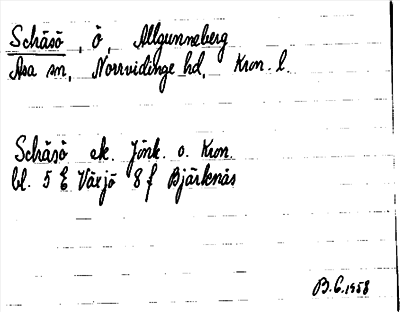 Schäsö, ö, Allgunneberg
Asa sn, Norrvidinge hd, Kron. l.
Schäsö ek. Jönk. o. Kron.
bl. 5 E Växjö 8 f Bjärknäs
B.C. 1958